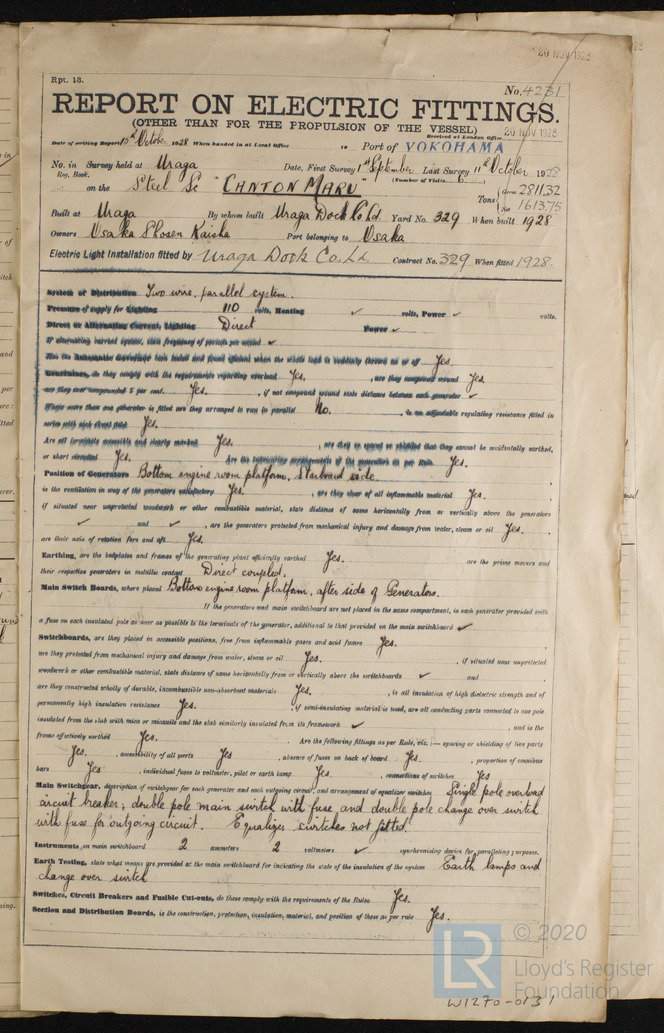 20 NOV 1928
Rpt. 13.
No. 4231
REPORT ON ELECTRIC FITTINGS.
(OTHER THAN FOR THE PROPULSION OF THE VESSEL)
Received at London Office 20 NOV 1928
Date of writing Report 15th October 1928 When handed in at Local Office 19 Port of YOKOHAMA
No. in Survey held at Uraga Date, First Survey 1st September Last Survey 11th October 1928
Reg. Book. (Number of Visits 6)
on the Steel Sc "CANTON MARU" Tons { Gross 2811.32
Net 1613.75
Built at Uraga By whom built Uraga Dock Co Ld. Yard No. 329 When built 1928
Owners Osaka Shosen Kaisha Port belonging to Osaka
Electric Light Installation fitted by Uraga Dock Co. Ld. Contract No. 329 When fitted 1928.
System of Distribution Two wire, parallel system.
Pressure of supply for Lighting 110 volts, Heating ✓ volts, Power ✓ volts.
Direct or Alternating Current, Lighting Direct Power ✓
If alternating current system, state frequency of periods per second ✓
Has the Automatic Governor been tested and found efficient when the whole load is suddenly thrown on or off Yes.
Generators, do they comply with the requirements regarding overload Yes. , are they compound wound Yes
are they over compounded 5 per cent. Yes. , if not compound wound state distance between each generator ✓
Where more than one generator is fitted are they arranged to run in parallel No. , is an adjustable regulating resistance fitted in
series with each shunt field Yes.
Are all terminals accessible and clearly marked Yes. , are they so spaced or shielded that they cannot be accidentally earthed,
or short circuited Yes. Are the lubricating arrangements of the generators as per Rule. Yes.
Position of Generators Bottom engine room platform, Starboard side.
is the ventilation in way of the generators satisfactory Yes. , are they clear of all inflammable material Yes.
if situated near unprotected woodwork or other combustible material, state distance of same horizontally from or vertically above the generators
✓ and ✓ , are the generators protected from mechanical injury and damage from water, steam or oil Yes.
are their axis of rotation fore and aft Yes.
Earthing, are the bedplates and frames of the generating plant efficiently earthed Yes. are the prime movers and
their respective generators in metallic contact Direct coupled.
Main Switch Boards, where placed Bottom engine room platform, after side of Generators.
If the generators and main switchboard are not placed in the same compartment, is each generator provided with
a fuse on each insulated pole as near as possible to the terminals of the generator, additional to that provided on the main switchboard ✓
Switchboards, are they placed in accessible positions, free from inflammable gases and acid fumes Yes.
are they protected from mechanical injury and damage from water, steam or oil Yes. , if situated near unprotected
woodwork or other combustible material, state distance of same horizontally from or vertically above the switchboards ✓ and
are they constructed wholly of durable, incombustible non-absorbent materials Yes. , is all insulation of high dielectric strength and of
permanently high insulation resistance Yes. , if semi-insulating material is used, are all conducting parts connected to one pole
insulated from the slab with mica or micanite and the slab similarly insulated from its framework ✓ , and is the
frame effectively earthed Yes. . Are the following fittings as per Rule, viz.:— spacing or shielding of live parts
Yes. , accessibility of all parts Yes , absence of fuses on back of board Yes. , proportion of omnibus
bars Yes , individual fuses to voltmeter, pilot or earth lamp Yes. , connections of switches Yes
Main Switchgear, description of switchgear for each generator and each outgoing circuit, and arrangement of equalizer switches Single pole overload
circuit breaker; double pole main switch with fuse and double pole change over switch
with fuse for outgoing circuit. Equalizer switches not fitted.
Instruments, on main switchboard 2 ammeters 2 voltmeters ✓ synchronising device for paralleling purposes.
Earth Testing, state what means are provided at the main switchboard for indicating the state of the insulation of the system Earth lamps and
change over switch
Switches, Circuit Breakers and Fusible Cut-outs, do these comply with the requirements of the Rules Yes.
Section and Distribution Boards, is the construction, protection, insulation, material, and position of these as per rule Yes.
LR © 2020
Lloyd's Register
Foundation
W1270-0131